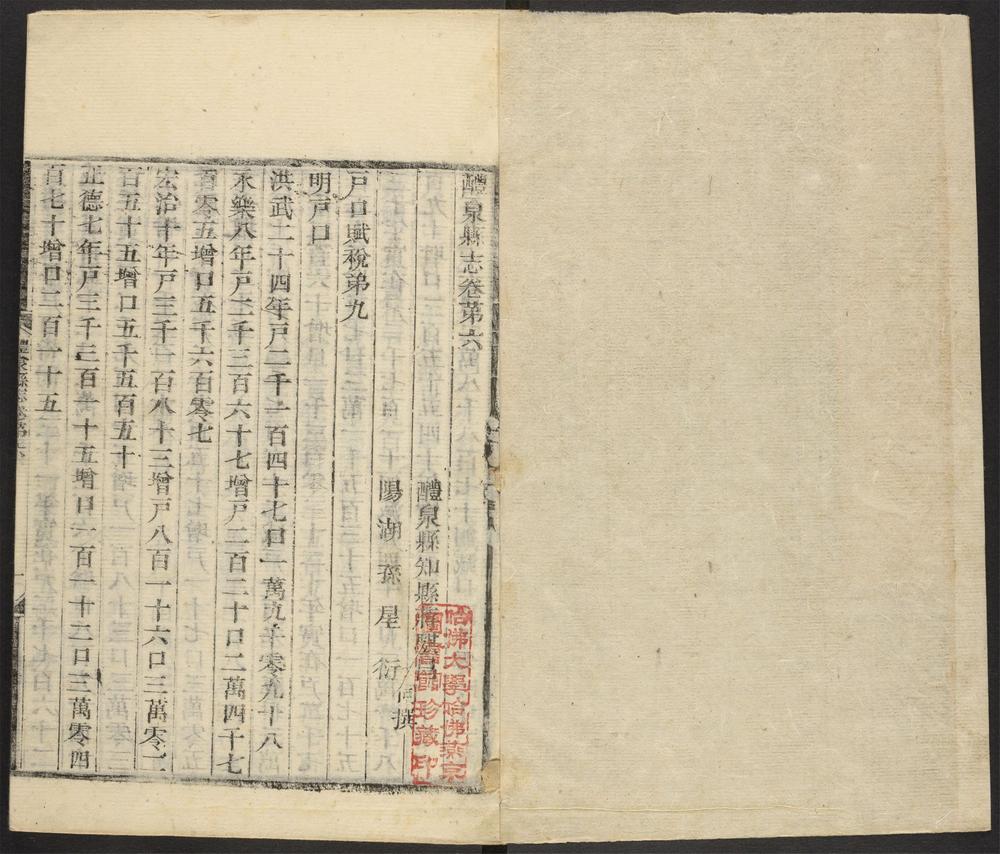 醴泉縣志卷第六
醴泉縣知縣蔣騏昌
陽湖孫星衍同撰
戸口賦稅弟九
明戸口
洪武二十四年戸二千一百四十七口一萬九千零九十八
永樂八年戸二千三百六十七增戸二百二十口二萬四千七
百零五增口五千六百零七
宏治十年戸三千一百八十三增戸八百一十六口三萬零二
百五十五增口五千五百五十
正德七年戸三千三百一十五增口一百一十二口三萬零四
百七十增口二百一十五
醴泉縣志卷第六
哈佛大學哈佛燕京
圖書館珍藏印